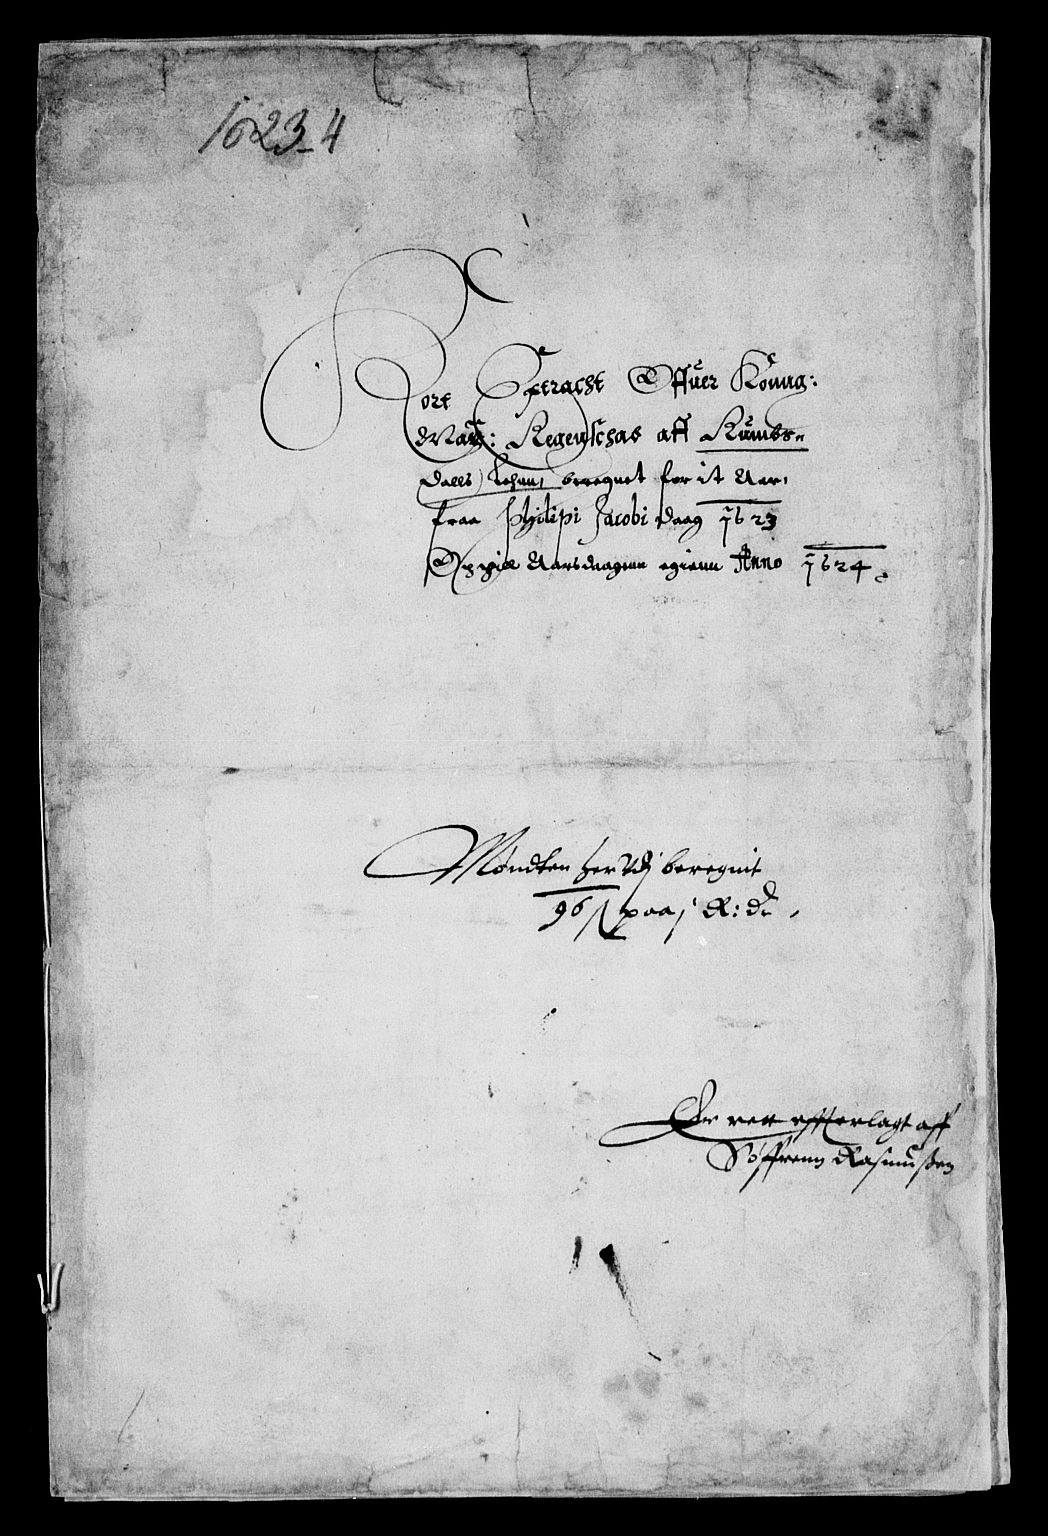 1623-4
Kort Extracht Offuer Konng:
Maÿ: Regenschab aff Rumbs-
dalls Lehnn, beregnet for it Aar,
fraa Philipi Jacobi daag 1623
Och till Aarsdagenn egienn Anno 1624.
Møndten her vdj beregnit
96 ß paa j R: dr.
Er rett offuerlagt aff
Søffrenn Rasmußen